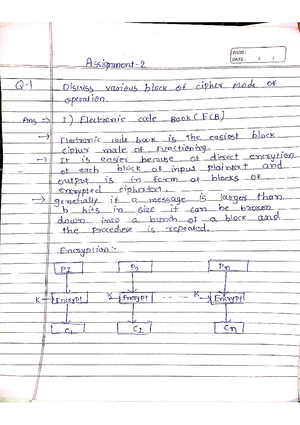 PAGE:
DATE: / /
Assignment-2
Q-1 Discuss various block of cipher mode of
operation.
Ans ⇒ 1) Electronic code Book (ECB)
→ Electronic code book is the easiest block
cipher mode of functioning.
→ It is easier because of direct encryption
of each block of input plaintext and
output is in form of blocks of
encrypted ciphertext.
→ generally if a message is larger than
b bits in size it can be broken
down into a bunch of a block and
the procedure is repeated.
Encryption:-
P1 P2 Pn
K Encrypt K Encrypt K Encrypt
C1 C2 Cn